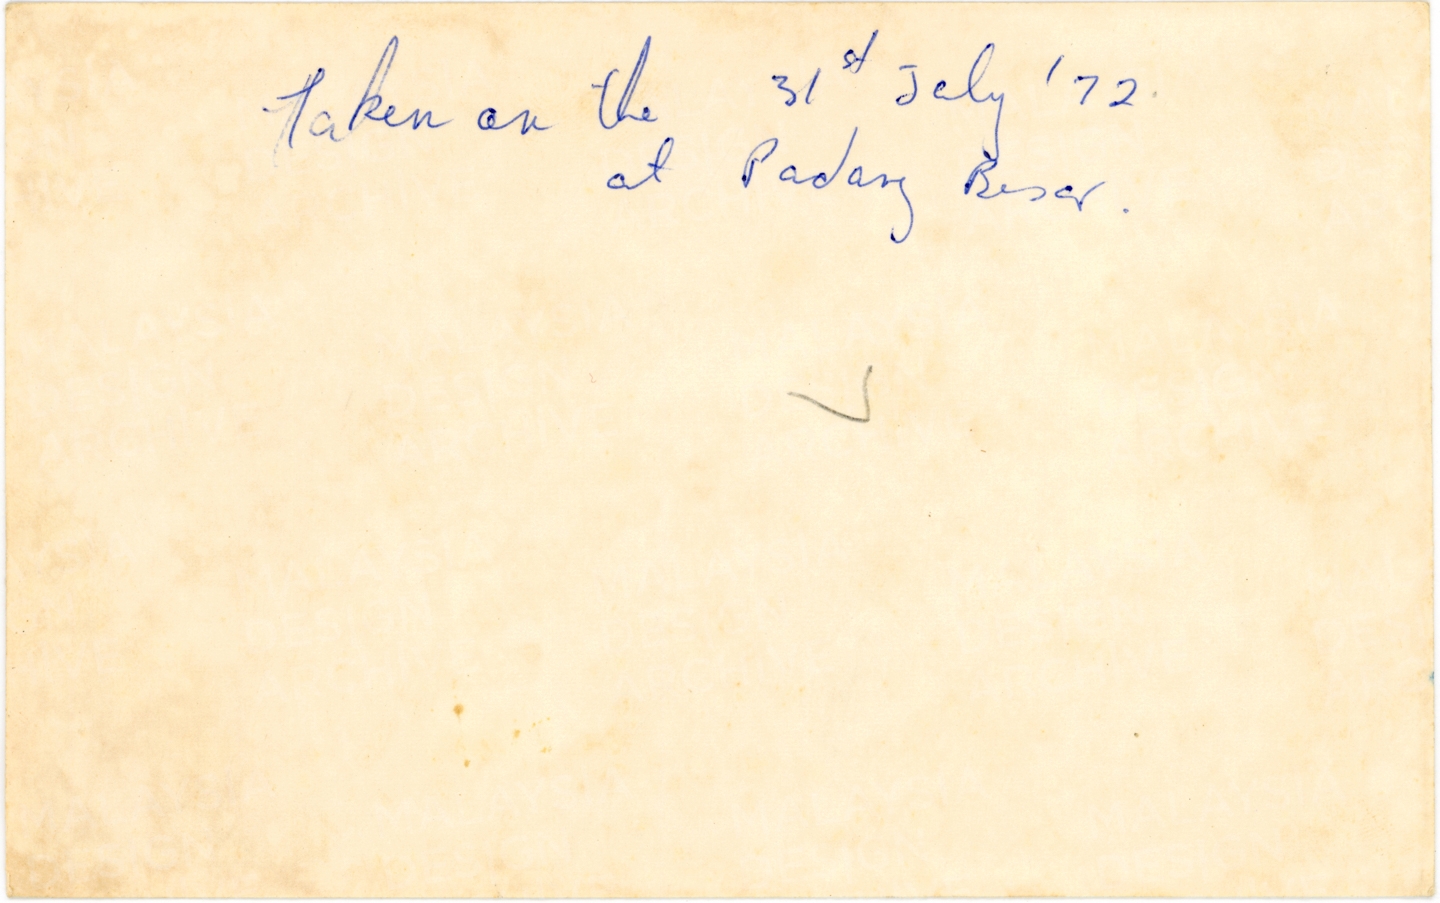 Taken on the 31st July '72.
at Padang Besar.